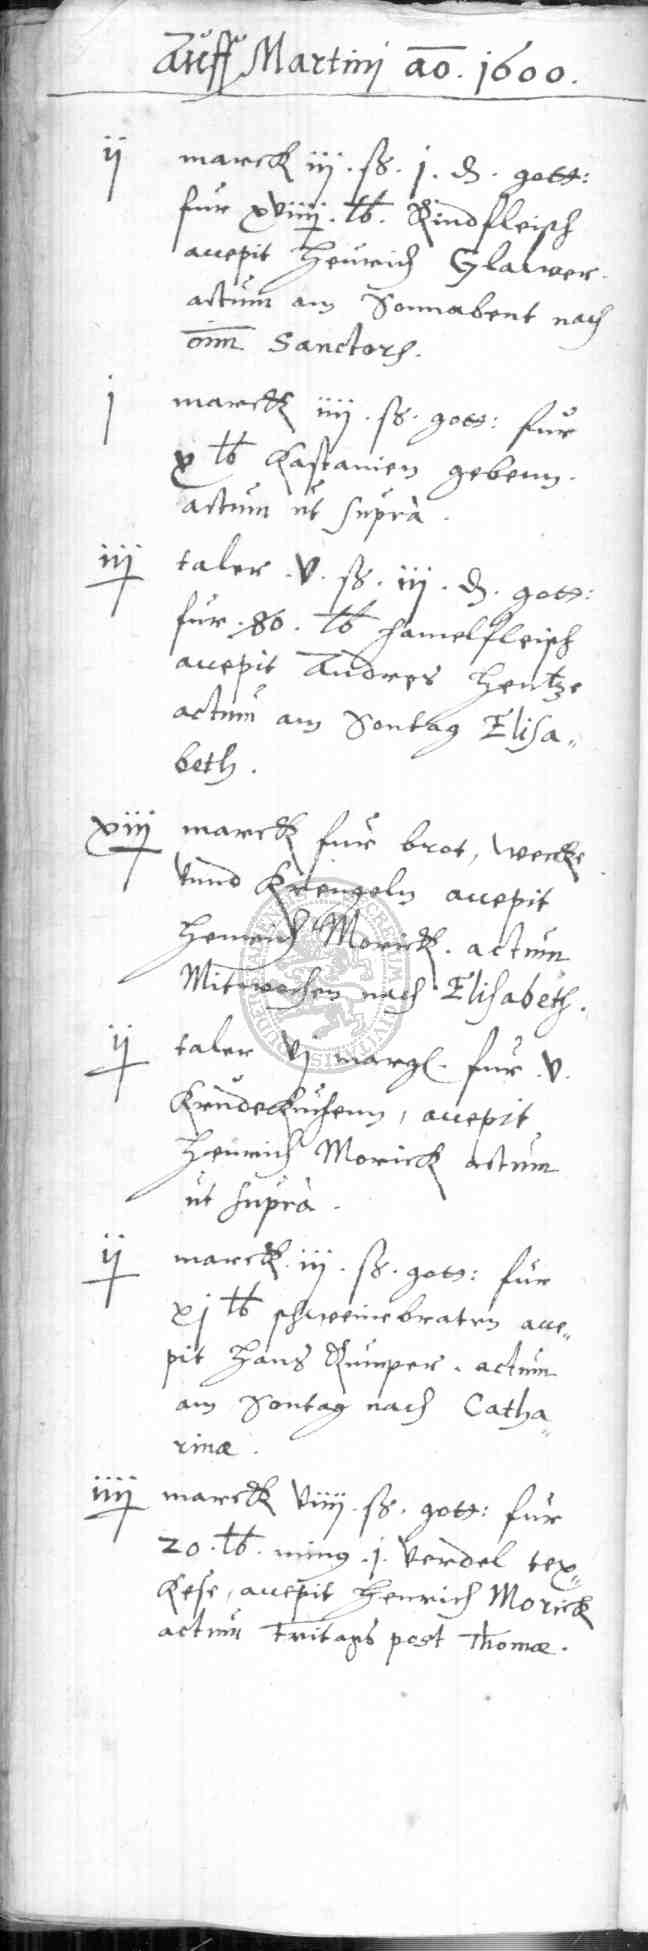 Auff Martini ao. 1600.
ij marck iij. ß. j. d. gott:
fur xviiij. lb. Rindfleisch
accepit Heinrich Glawer.
actum am Sonnabent nach
oim Sanctorh.
j marck iiij. ß. gott: fur
x lb Kastanien gebenn.
actum ut supra.
iij taler. v. ß. iij. d. gott:
fur. 86. lb hamelfleisch
accepit Andres Hentze
actum am Sontag Elisa„
beth.
xiij marck fur brot, wecke
vnnd Krengeln accepit
Henrich Morick. actum
Mitwochen nach Elisabeth.
ij taler vj margl. fur. v.
Krudekuchenn, accepit
Heinrich Morick actum
ut supra.
ij marck. iij. ß. gott: fur
xj lb schweinebraten acce„
pit Hans Kumper. actum
am Sontag nach Catha„
rinæ.
iiij marck viiij. ß. gott: fur
20. lb. ming. j. verdel tex„
Kese, accepit Henrich Morick
actum Fritags post Thomæ.